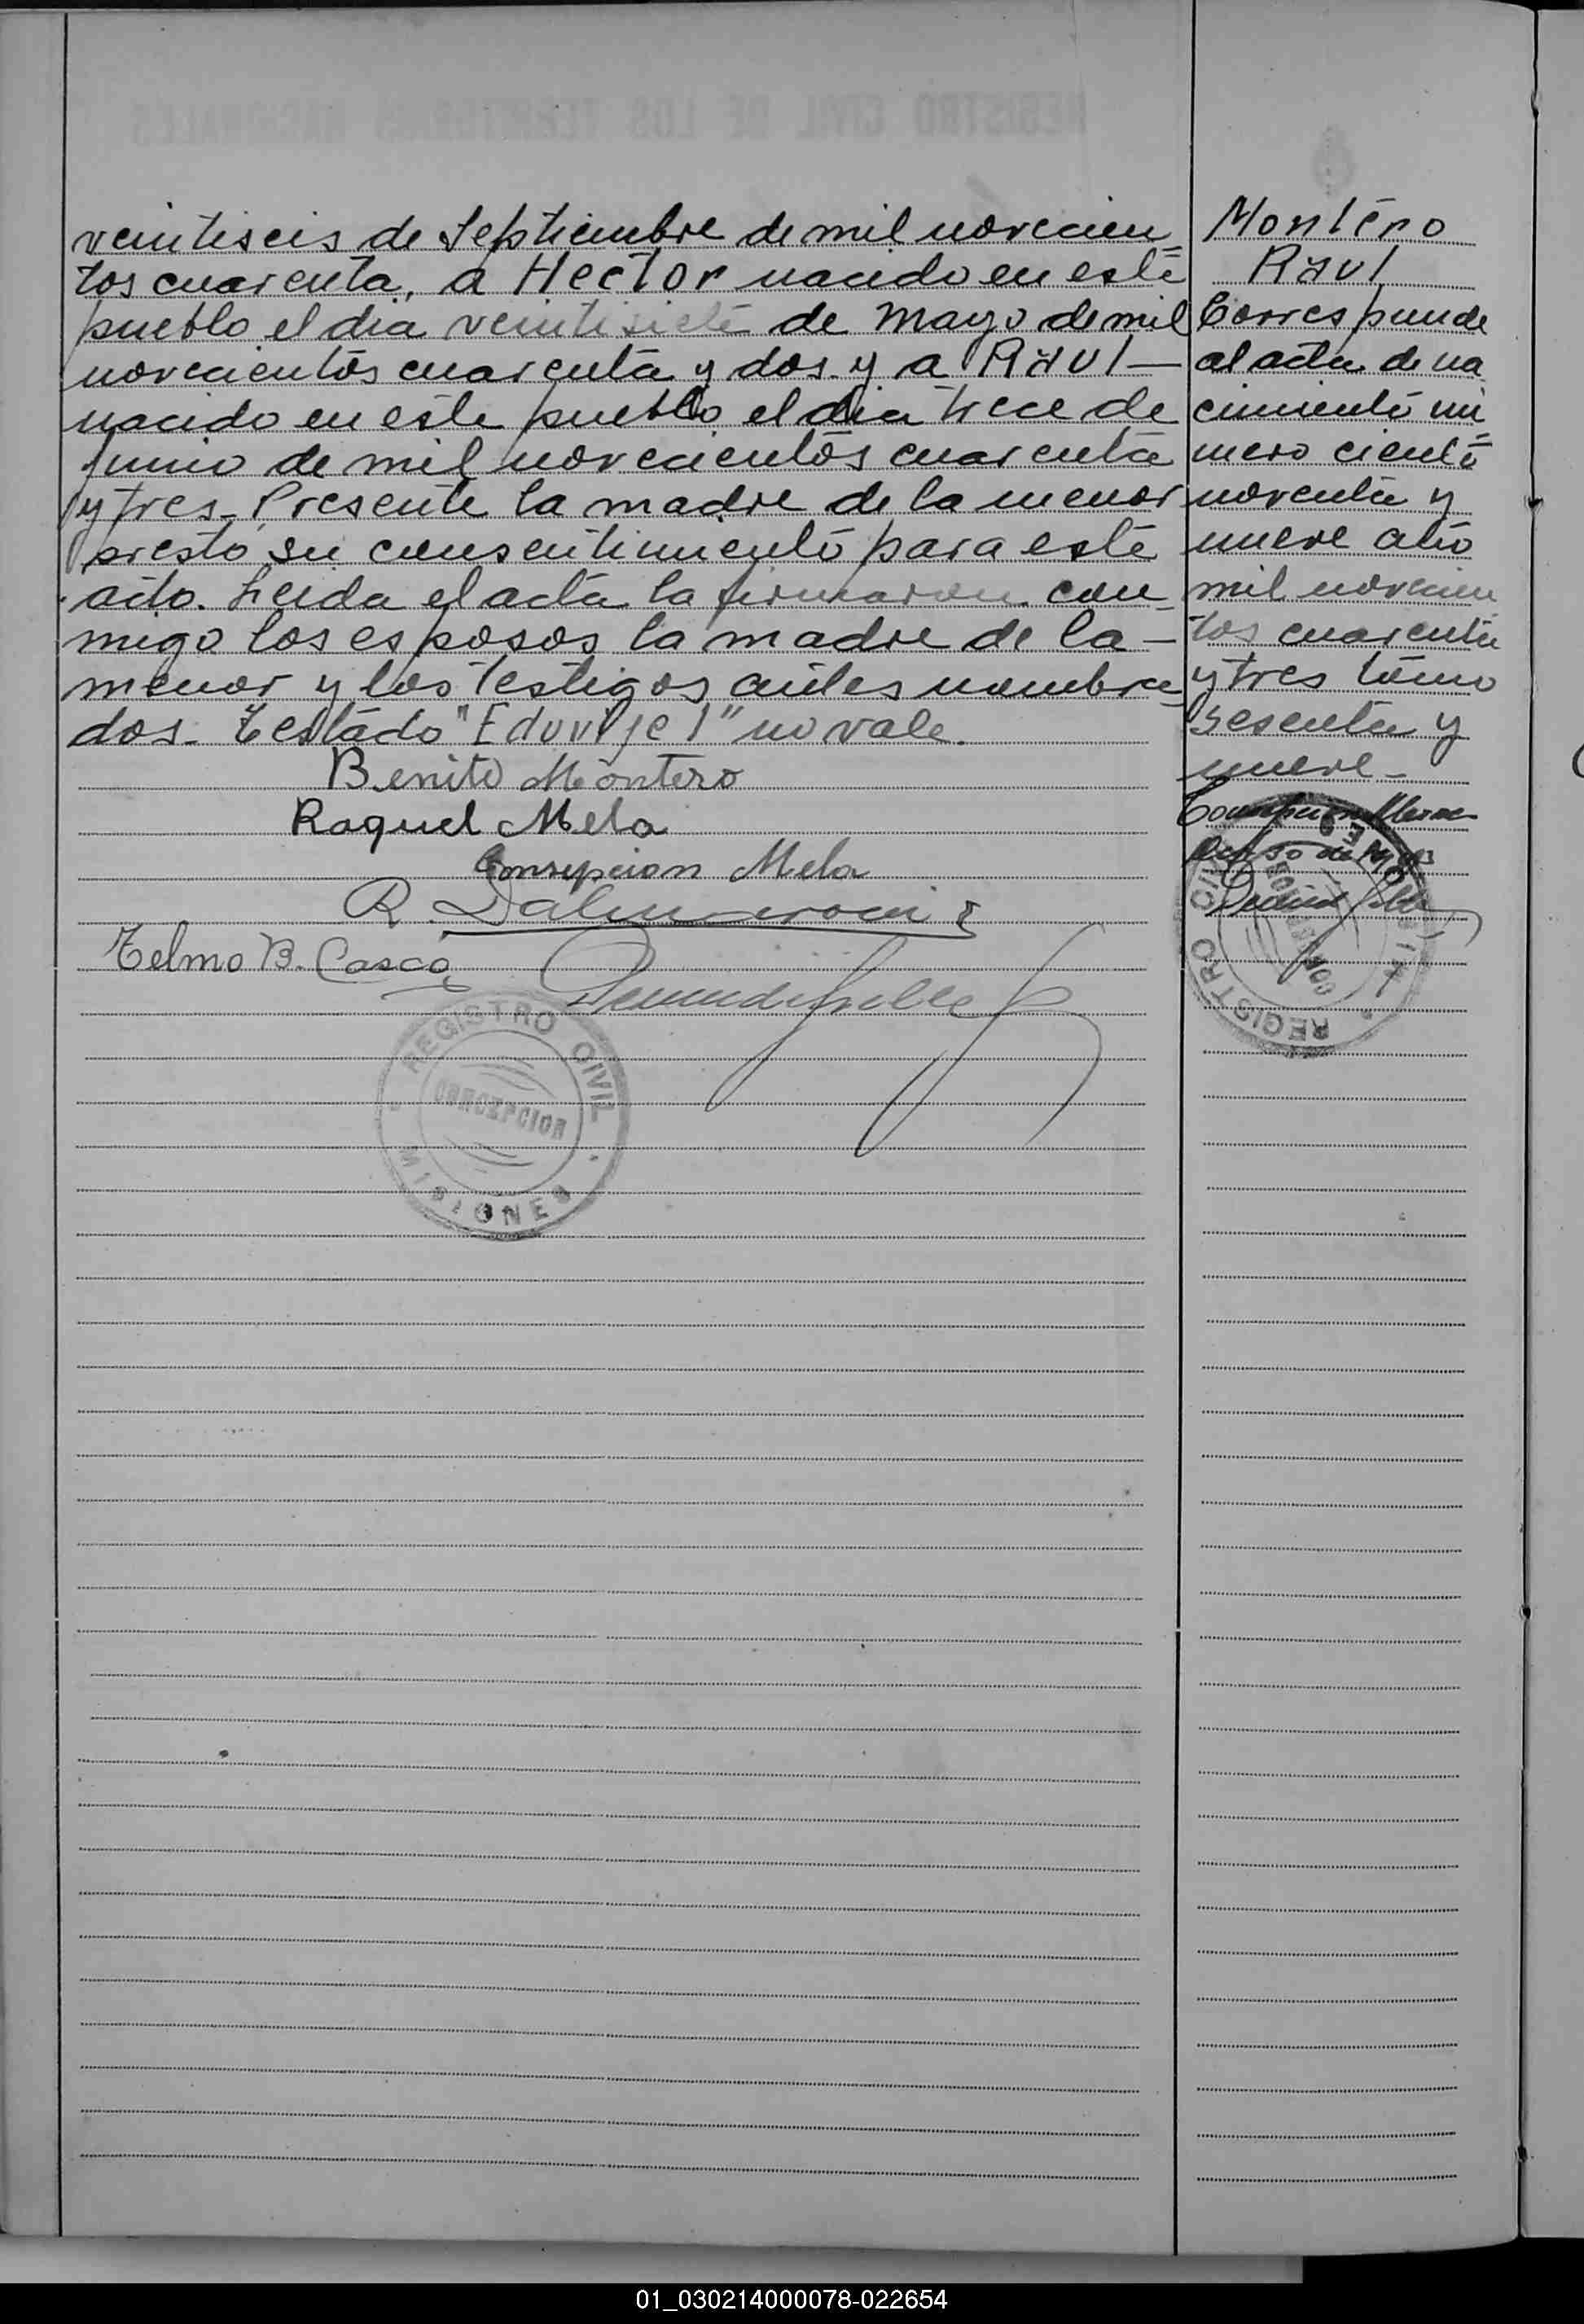 veintiseis de Septiembre de mil novecien-
tos cuarenta, a Hector nacido en este
pueblo el dia veintisiete de Mayo de mil
novecientos cuarenta y dos y a Raul —
nacido en este pueblo el dia trece de
Junio de mil novecientos cuarenta
y tres. Presente la madre de la menor
prestó su consentimiento para este
acto. Leida el acta la firmaron con-
migo los esposos la madre de la —
menor y los testigos antes nombra-
dos. Testado "Eduvije 1" no vale.
Benito Montero
Raquel Mela
Consepcion Mela
R. Dalmaroni
Telmo B. Casco
REGISTRO CIVIL
CONCEPCION
MISIONES
Montero
Raul
Corresponde
al acta de na
cimiento nú
mero ciento
noventa y
nueve año
mil novecien
tos cuarenta
y tres tomo
sesenta y
nueve -
REGISTRO CIVIL
01_030214000078-022654